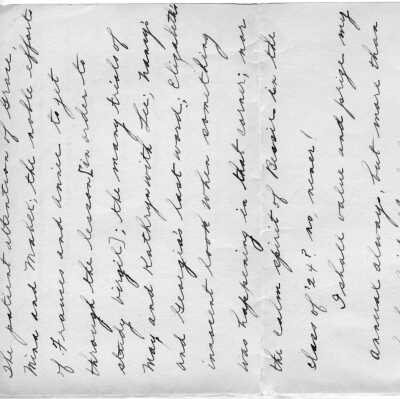 the patient attention of Grace,
Mina and Mabel; the noble efforts
of Frances and Annie to get
through the lesson [in order to
study Virgil]; the many trials of
May and Kathryn with Lee; Nancy's
and Georgia's last word; Elizabeth's
innocent look when something
was happening in that corner; nor
the calm spirit of Bessie in the
class of '24? no never!
I shall value and prize my
Annual always, but more than